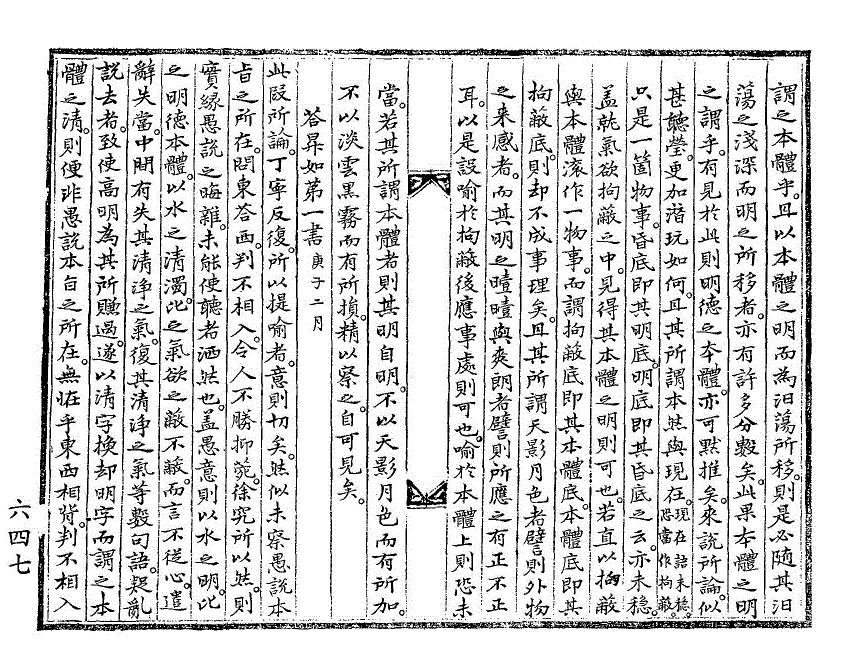 謂之本體乎。且以本體之明而為汩蕩所移。則是必隨其汩
蕩之淺深而明之所移者。亦有許多分數矣。此果本體之明
之謂乎。有見於此則明德之本體。亦可默推矣。來說所論。似
甚聽瑩。更加潛玩如何。且其所謂本然與現在。現在語未穩。恐當作拘蔽。
只是一箇物事。昏底即其明底。明底即其昏底之云。亦未穩。
盖就氣欲拘蔽之中。見得其本體之明則可也。若直以拘蔽
與本體滚作一物事。而謂拘蔽底即其本體底。本體底即其
拘蔽底。則却不成事理矣。且其所謂天影月色者。譬則外物
之來感者。而其明之曀曀與爽朗者。譬則所應之有正不正
耳。以是設喻於拘蔽後應事處則可也。喻於本體上則恐未
當。若其所謂本體者則其明自明。不以天影月色而有所加。
不以淡雲黑霧而有所損。精以察之。自可見矣。
答昇如第一書 庚子二月
此段所論。丁寧反復。所以提喻者。意則切矣。然似未察愚說本
旨之所在。問東答西。判不相入。令人不勝抑菀。徐究所以然。則
實緣愚說之晦雜。未能使聽者洒然也。盖愚意則以水之明。比
之明德本體。以水之清濁。比之氣欲之蔽不蔽。而言不從心。遣
辭失當。中間有失其清淨之氣。復其清淨之氣等數句語。疑亂
說去者。致使高明為其所賺過。遂以清字換却明字而謂之本
體之清。則便非愚說本旨之所在。無怪乎東西相背。判不相入
六四七